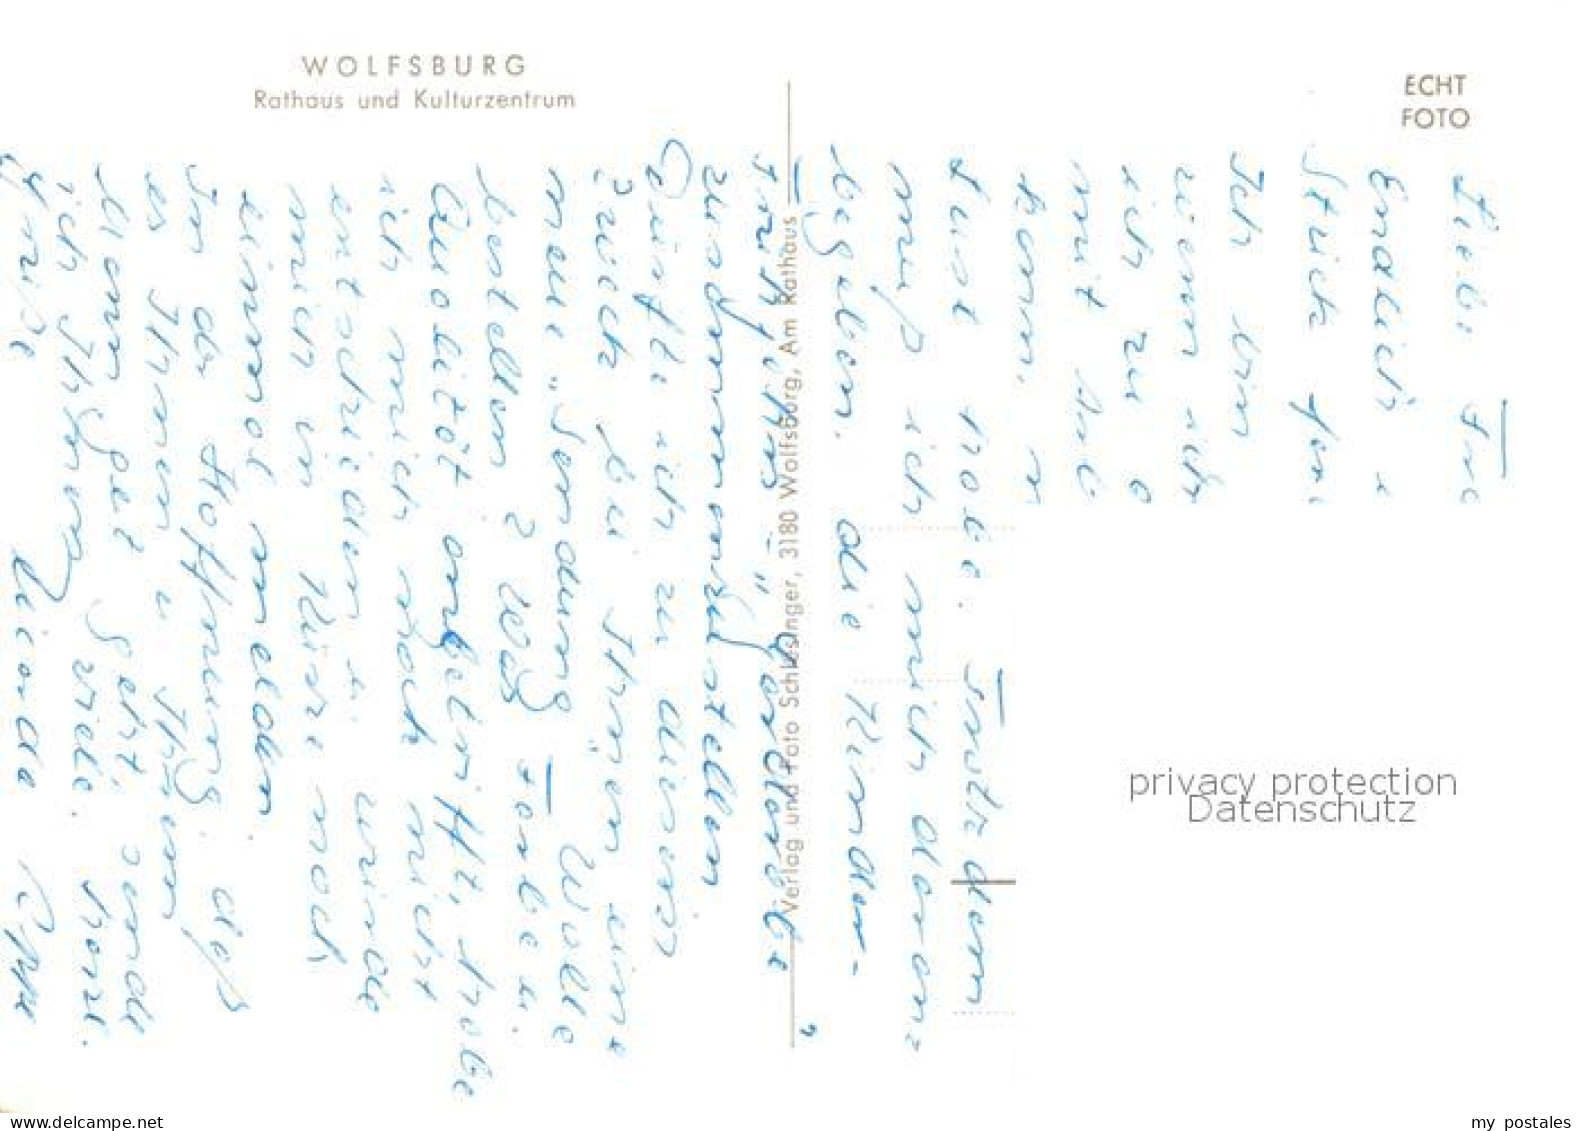 WOLFSBURG
Rathaus und Kulturzentrum
ECHT
FOTO
Verlag und Foto Schlesinger, 3180 Wolfsburg, Am Rathaus
Liebe Fra
Endlich
Stück
Ich bin
wenn ich
ich zu
mit
kann.
Lust habe. Trotzdem
muß ich mich daran
begeben, die Kinder-
Frühjahrs-" Garderobe
zusammenzustellen
Dürfte ich zu diesem
Zweck bei Ihnen eine
neue „Sendung" Wolle
bestellen? Was Farbe u.
Qualität anbetrifft, habe
ich mich noch nicht
entschieden u. würde
mich in Kürze noch
einmal melden.
In der Hoffnung, daß
es Ihnen u. Ihrem
Mann gut geht, sende
ich Ihnen viele herzl.
Grüße
privacy protection
Datenschutz
www.delcampe.net
my postales